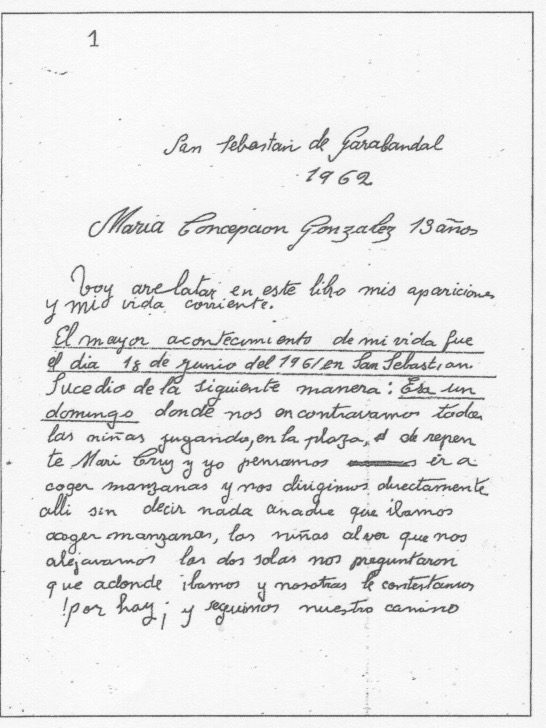 1
San Sebastian de Garabandal
1962
Maria Concepcion Gonzalez 13 años
Voy arelatar en este libro mis apariciones
y mis vida corriente.
El mayor acontecimiento de mi vida fue
el dia 18 de junio del 1961 en San Sebastian.
Sucedio de la siguiente manera: Era un
domingo donde nos encontravamos todas
las niñas jugando, en la plaza, de repen
te Mari Cruz y yo pensamos ir a
coger manzanas y nos dirigimos directamente
alli sin decir nada anadie que ibamos
acoger manzanas, las niñas alver que nos
alejavamos las dos solas nos preguntaron
que adonde ibamos y nosotras le contestamos
!por hay¡ y seguimos nuestro camino